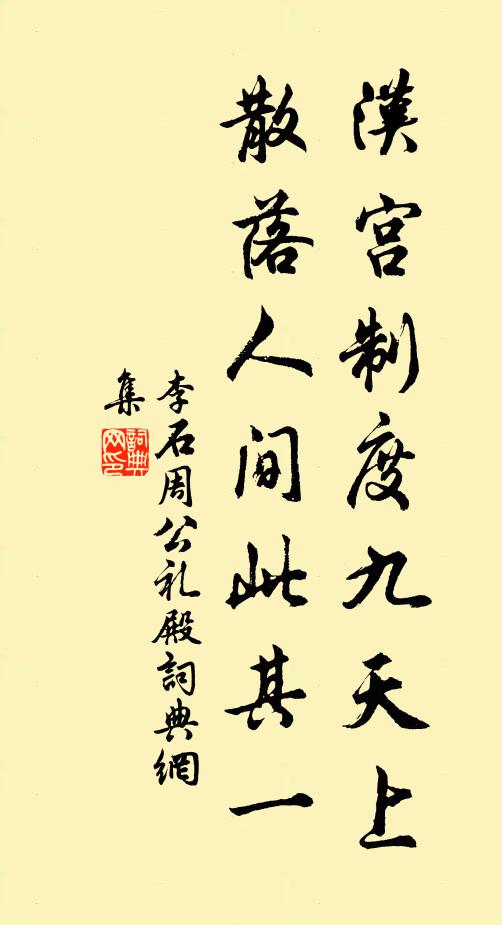 漢宫制度九天上
散落人間此其一
李石周公礼殿詞典網
集
詞典
网印